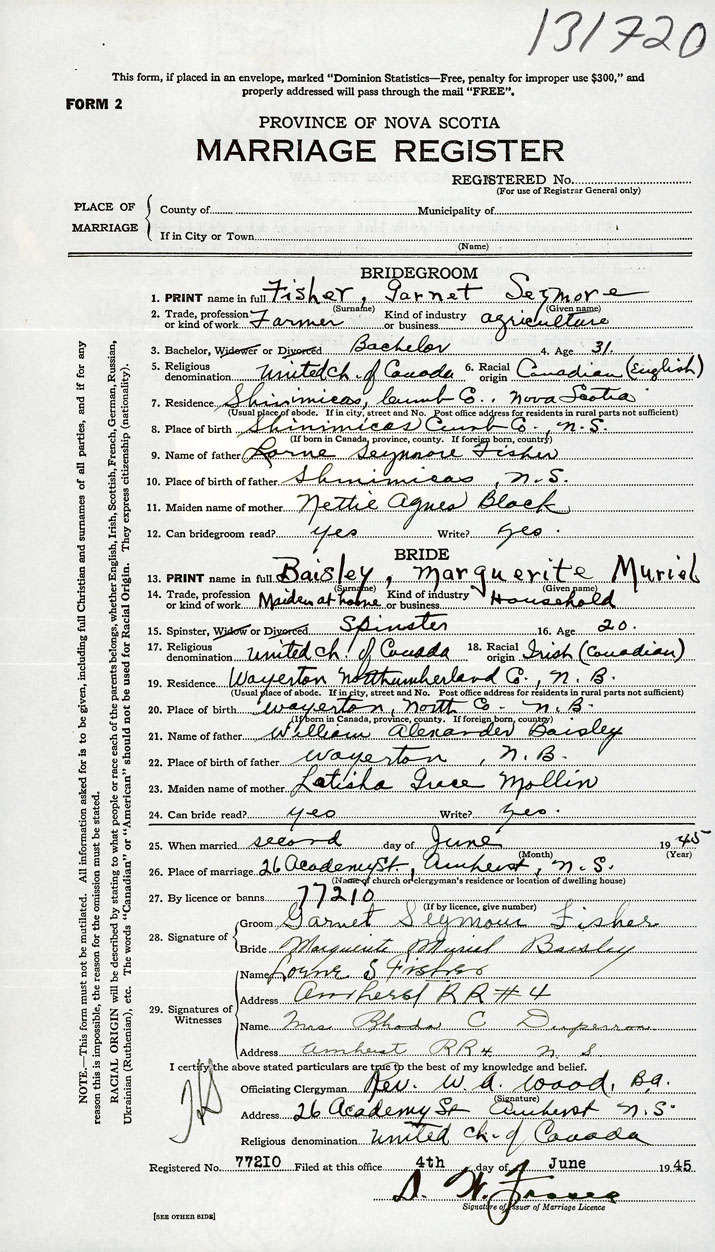 131720
This form, if placed in an envelope, marked "Dominion Statistics—Free, penalty for improper use $300," and
properly addressed will pass through the mail "FREE".
FORM 2
PROVINCE OF NOVA SCOTIA
MARRIAGE REGISTER
REGISTERED No.
(For use of Registrar General only)
PLACE OF MARRIAGE
County of Municipality of
If in City or Town
(Name)
BRIDEGROOM
1. PRINT name in full Fisher, Garnet Seymore
(Surname) (Given name)
2. Trade, profession or kind of work Farmer Kind of industry or business agriculture
3. Bachelor, Widower or Divorced Bachelor 4. Age 31.
5. Religious denomination United Ch. of Canada 6. Racial origin Canadian (English)
7. Residence Shinimicas, Cumb Co., Nova Scotia
(Usual place of abode. If in city, street and No. Post office address for residents in rural parts not sufficient)
8. Place of birth Shinimicas Cumb Co. N.S.
(If born in Canada, province, county. If foreign born, country)
9. Name of father Lorne Seymore Fisher
10. Place of birth of father Shinimicas, N.S.
11. Maiden name of mother Nettie Agnes Black
12. Can bridegroom read? yes Write? yes.
BRIDE
13. PRINT name in full Baisley, Marguerite Muriel
(Surname) (Given name)
14. Trade, profession or kind of work Maiden at home Kind of industry or business Household
15. Spinster, Widow or Divorced Spinster 16. Age 20.
17. Religious denomination United Ch. of Canada 18. Racial origin Irish (Canadian)
19. Residence Wayerton Northumberland Co., N.B.
(Usual place of abode. If in city, street and No. Post office address for residents in rural parts not sufficient)
20. Place of birth Wayerton, North Co. N.B.
(If born in Canada, province, county. If foreign born, country)
21. Name of father William Alexander Baisley
22. Place of birth of father Wayerton, N.B.
23. Maiden name of mother Letisha Grace Mollin
24. Can bride read? yes Write? yes.
25. When married second day of June 1945
(Month) (Year)
26. Place of marriage 26 Academy St., Amherst, N.S.
(Name of church or clergyman's residence or location of dwelling house)
27. By licence or banns 77210
(If by licence, give number)
28. Signature of
Groom Garnet Seymour Fisher
Bride Marguerite Muriel Baisley
29. Signatures of Witnesses
Name Lorne S Fisher
Address Amherst RR #4
Name Mrs Rhoda C
Address Amherst RR4 N S
I certify the above stated particulars are true to the best of my knowledge and belief.
Officiating Clergyman Rev. W. A. Wood, B.A.
(Signature)
Address 26 Academy St Amherst N.S.
Religious denomination United Ch. of Canada
Registered No. 77210 Filed at this office 4th day of June 1945
D. W.
Signature of Issuer of Marriage Licence
[SEE OTHER SIDE]
NOTE.—This form must not be mutilated. All information asked for is to be given, including full Christian and surnames of all parties, and if for any
reason this is impossible, the reason for the omission must be stated.
RACIAL ORIGIN will be described by stating to what people or race each of the parents belongs, whether English, Irish, Scottish, French, German, Russian,
Ukrainian (Ruthenian), etc. The words "Canadian" or "American" should not be used for Racial Origin. They express citizenship (nationality).